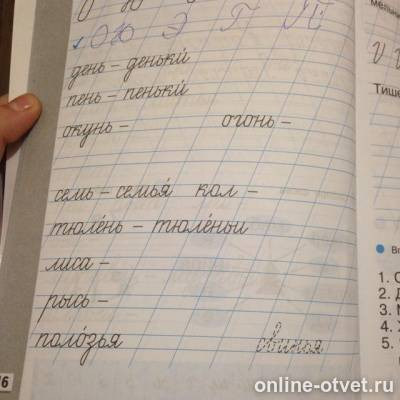 Ю Э Г П
день – деньки́
пень – пеньки́
окунь – огонь –
семь – семья́ кол –
тюле́нь – тюле́ньи
лиса –
рысь –
поло́зья свинья
Тише
1. С
2. Д
3.
4. Х
5.
online-otvet.ru